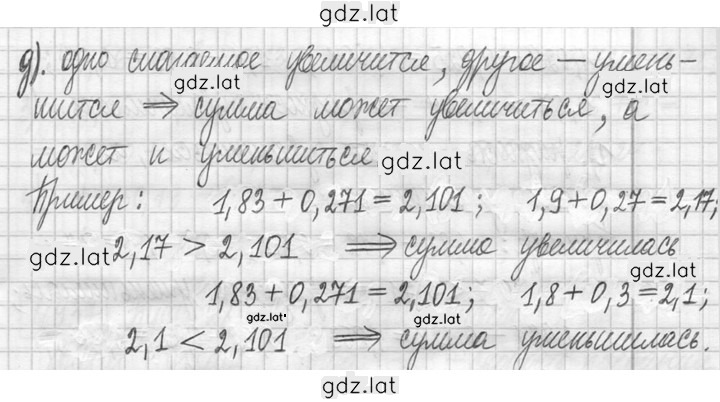 gdz.lat
д). одно слагаемое увеличится, другое — умень-
gdz.lat
gdz.lat
шится ⟹ сумма может увеличиться, а
может и уменьшиться gdz.lat
Пример: 1,83 + 0,271 = 2,101; 1,9 + 0,27 = 2,17;
gdz.lat 2,17 > 2,101 ⟹ сумма увеличилась
gdz.lat
1,83 + 0,271 = 2,101; 1,8 + 0,3 = 2,1;
gdz.lat gdz.lat
2,1 < 2,101 ⟹ сумма уменьшилась.
gdz.lat